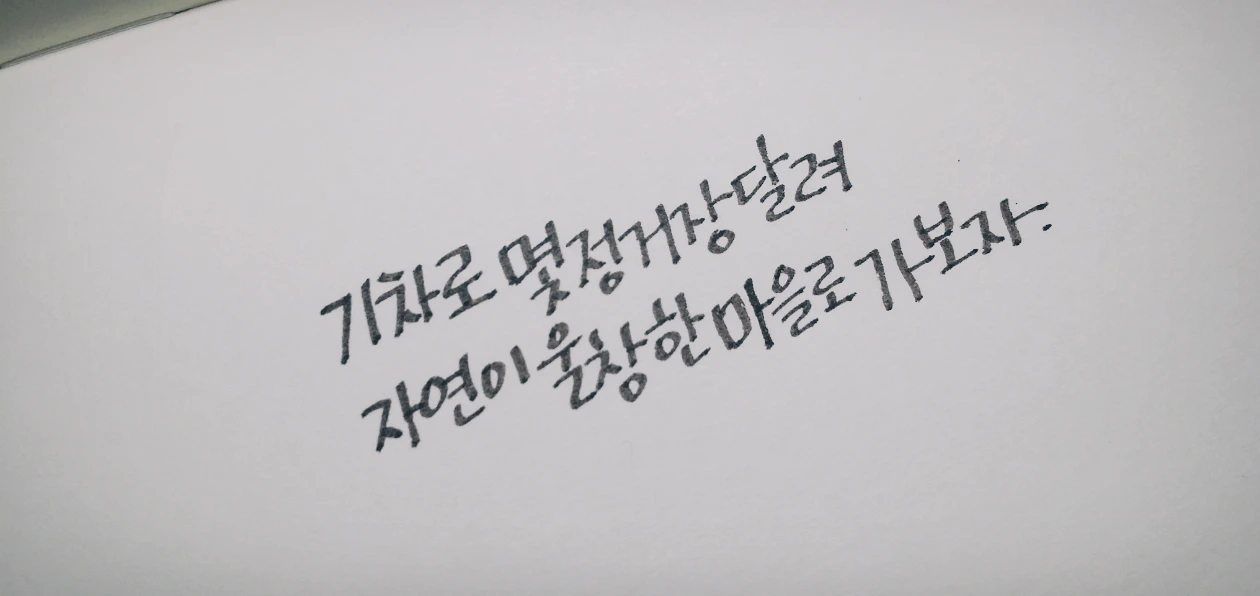 기차로 몇 정거장 달려
자연이 울창한 마을로 가 보자.